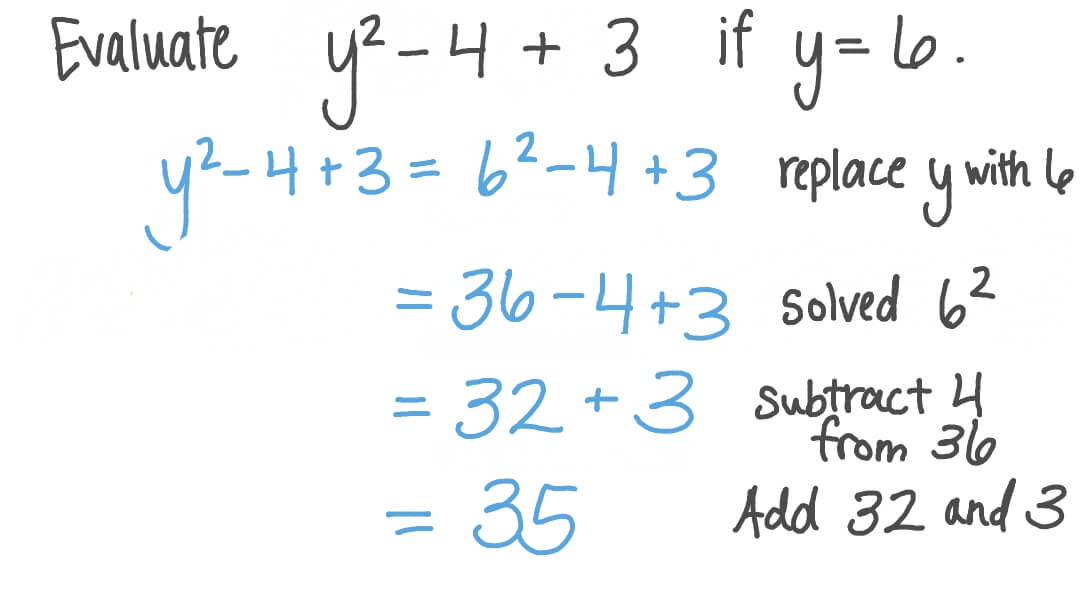 Evaluate y² - 4 + 3 if y = 6.
y² - 4 + 3 = 6² - 4 + 3 replace y with 6
= 36 - 4 + 3 solved 6²
= 32 + 3 subtract 4
from 36
= 35 Add 32 and 3